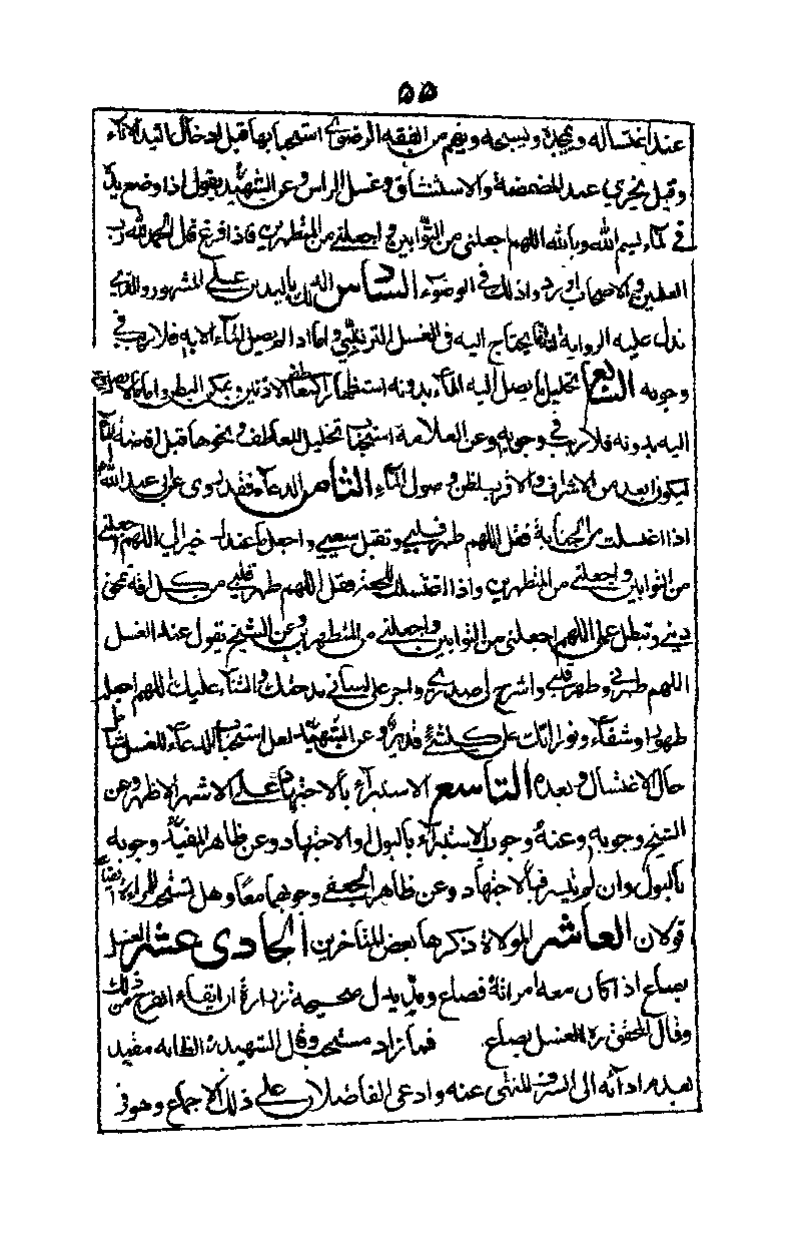 ۵۵
عند اغتساله و يمجده ويسبحه ويفهم من الفقه الرضوي استحبابها قبل ادخال اليد الاناء
وقيل يجزي عند المضمضة والاستنشاق وغسل الراس وعن الشهيد يقول اذا وضع يده
في الماء بسم الله وبالله اللهم اجعلني من التوابين واجعلني من المتطهرين فاذا فرغ قال الحمد لله رب
العلمين والاصحاب اوردوا ذلك في الوضوء السادس الدلك باليد على المشهور والذي
تدل عليه الرواية انما يحتاج اليه في الغسل الترتيبي واما اذا لم يصل الماء الا به فلا ريب في
وجوبه السابع تخليل ما يصل اليه الماء بدونه استظهارا كمعاطف الاذنين وعكن البطن واما ما لا يصل
اليه بدونه فلا ريب في وجوبه وعن العلامة استحباب تخليل المعاطف ونحوها قبل افاضة الماء
ليكون ابعد من الاسراف والاقرب لظن وصول الماء الثامن الدعاء فقد روى عن ابي عبد الله
اذا اغتسلت من الجنابة فقل اللهم طهر قلبي وتقبل سعيي واجعل ما عندك خيرا لي اللهم اجعلني
من التوابين واجعلني من المتطهرين واذا اغتسلت للجمعة فقل اللهم طهر قلبي من كل افة تمحق
ديني وتبطل عملي اللهم اجعلني من التوابين واجعلني من المتطهرين وعن الشيخ تقول عند الغسل
اللهم طهرني وطهر قلبي واشرح لي صدري واجر على لساني مدحتك والثناء عليك اللهم اجعله
طهورا وشفاء ونورا انك على كل شئ قدير وعن الشهيد لعل استحباب الدعاء للغسل شامل
حال الاغتسال وبعده التاسع الاستبراء بالاجتهاد على الاشهر الاظهر وعن
الشيخ وجوبه وعنه وجوب الاستبراء بالبول والاجتهاد وعن ظاهر المفيد وجوبه
بالبول وان لم يتيسر فبالاجتهاد وعن ظاهر الجعفي وجوبهما معا وهل يستحب للمراة ايضا
قولان العاشر الموالاة ذكرها بعض المتاخرين الحادي عشر الغسل
بصاع اذا كان معه امراته فصاع ومد يدل صحيحة زرارة
وقال المحقق ره الغسل بصاع فما زاد مستحب وقال الشهيد
اداته الى السرف المنهى عنه وادعى الفاضلان على ذلك الاجماع وهو في